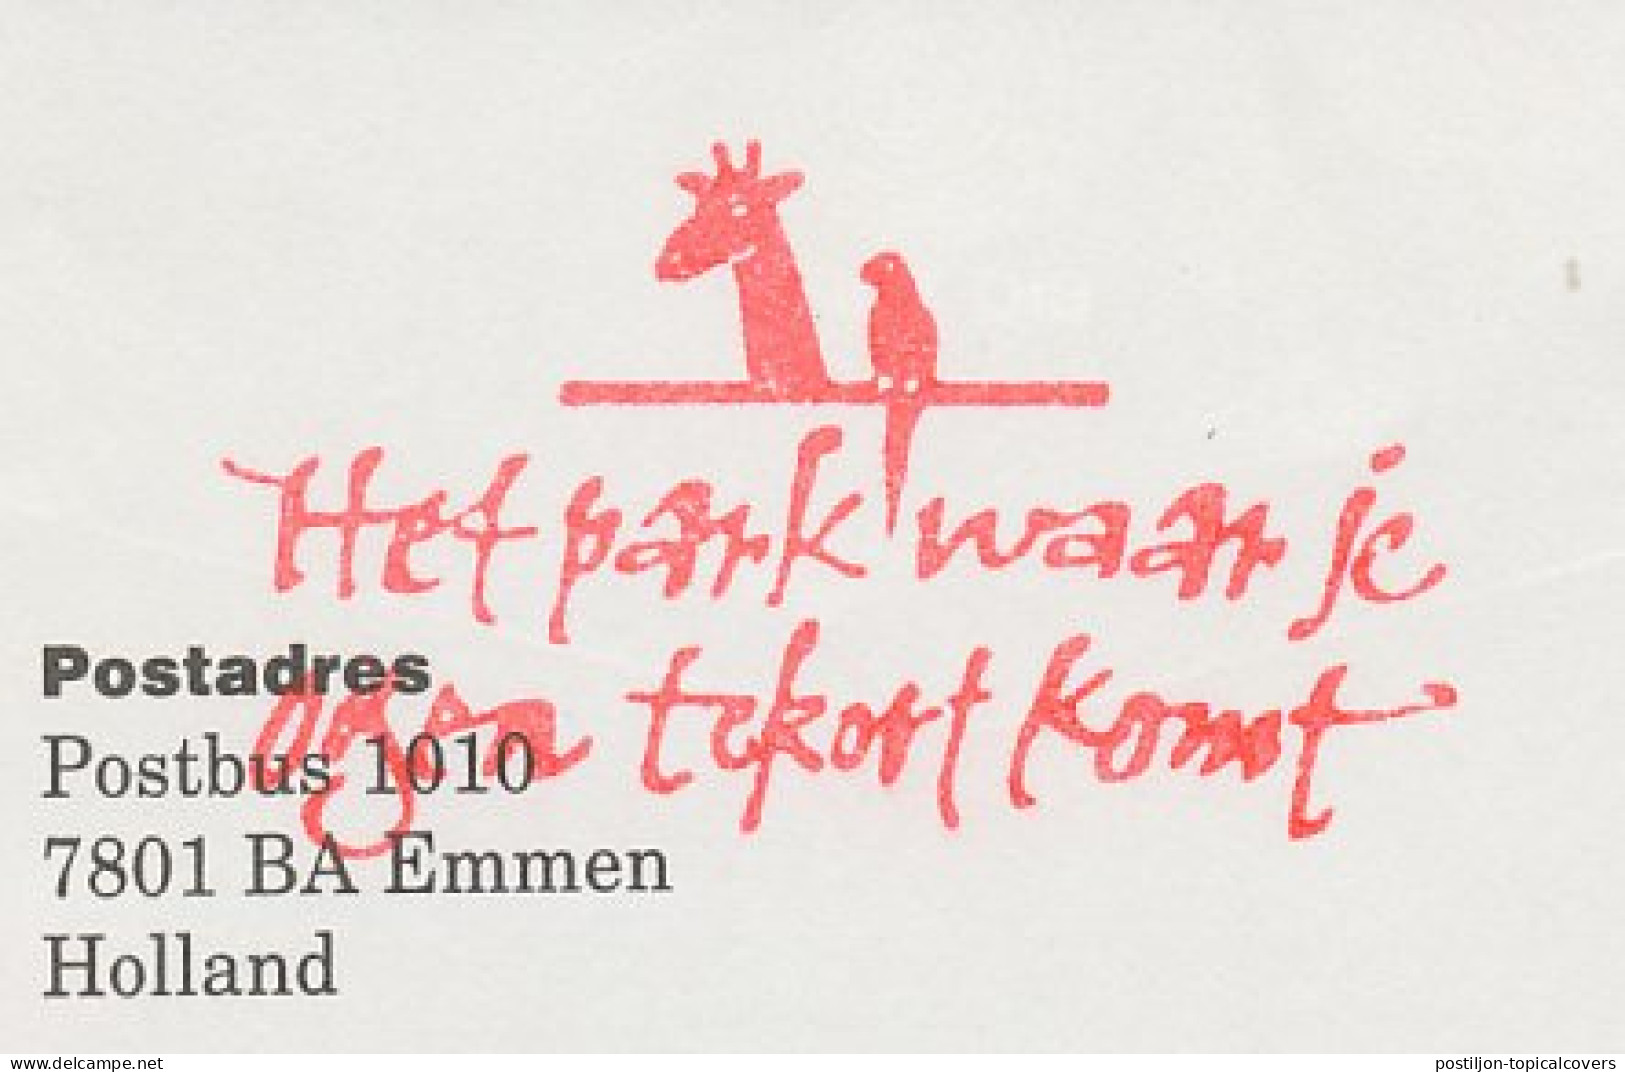 Het park waar je
ogen tekort komt
Postadres
Postbus 1010
7801 BA Emmen
Holland
postiljon-topicalcovers
https://www.delcampe.net